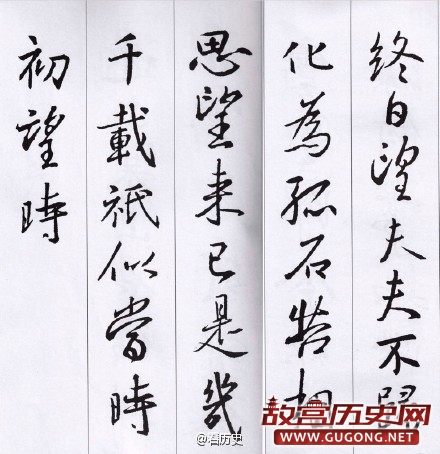 終日望夫夫不歸
化為孤石苦相
思望来已是幾
千載祇似當時
初望時
@看历史
故宫历史网
WWW.GUGONG.NET